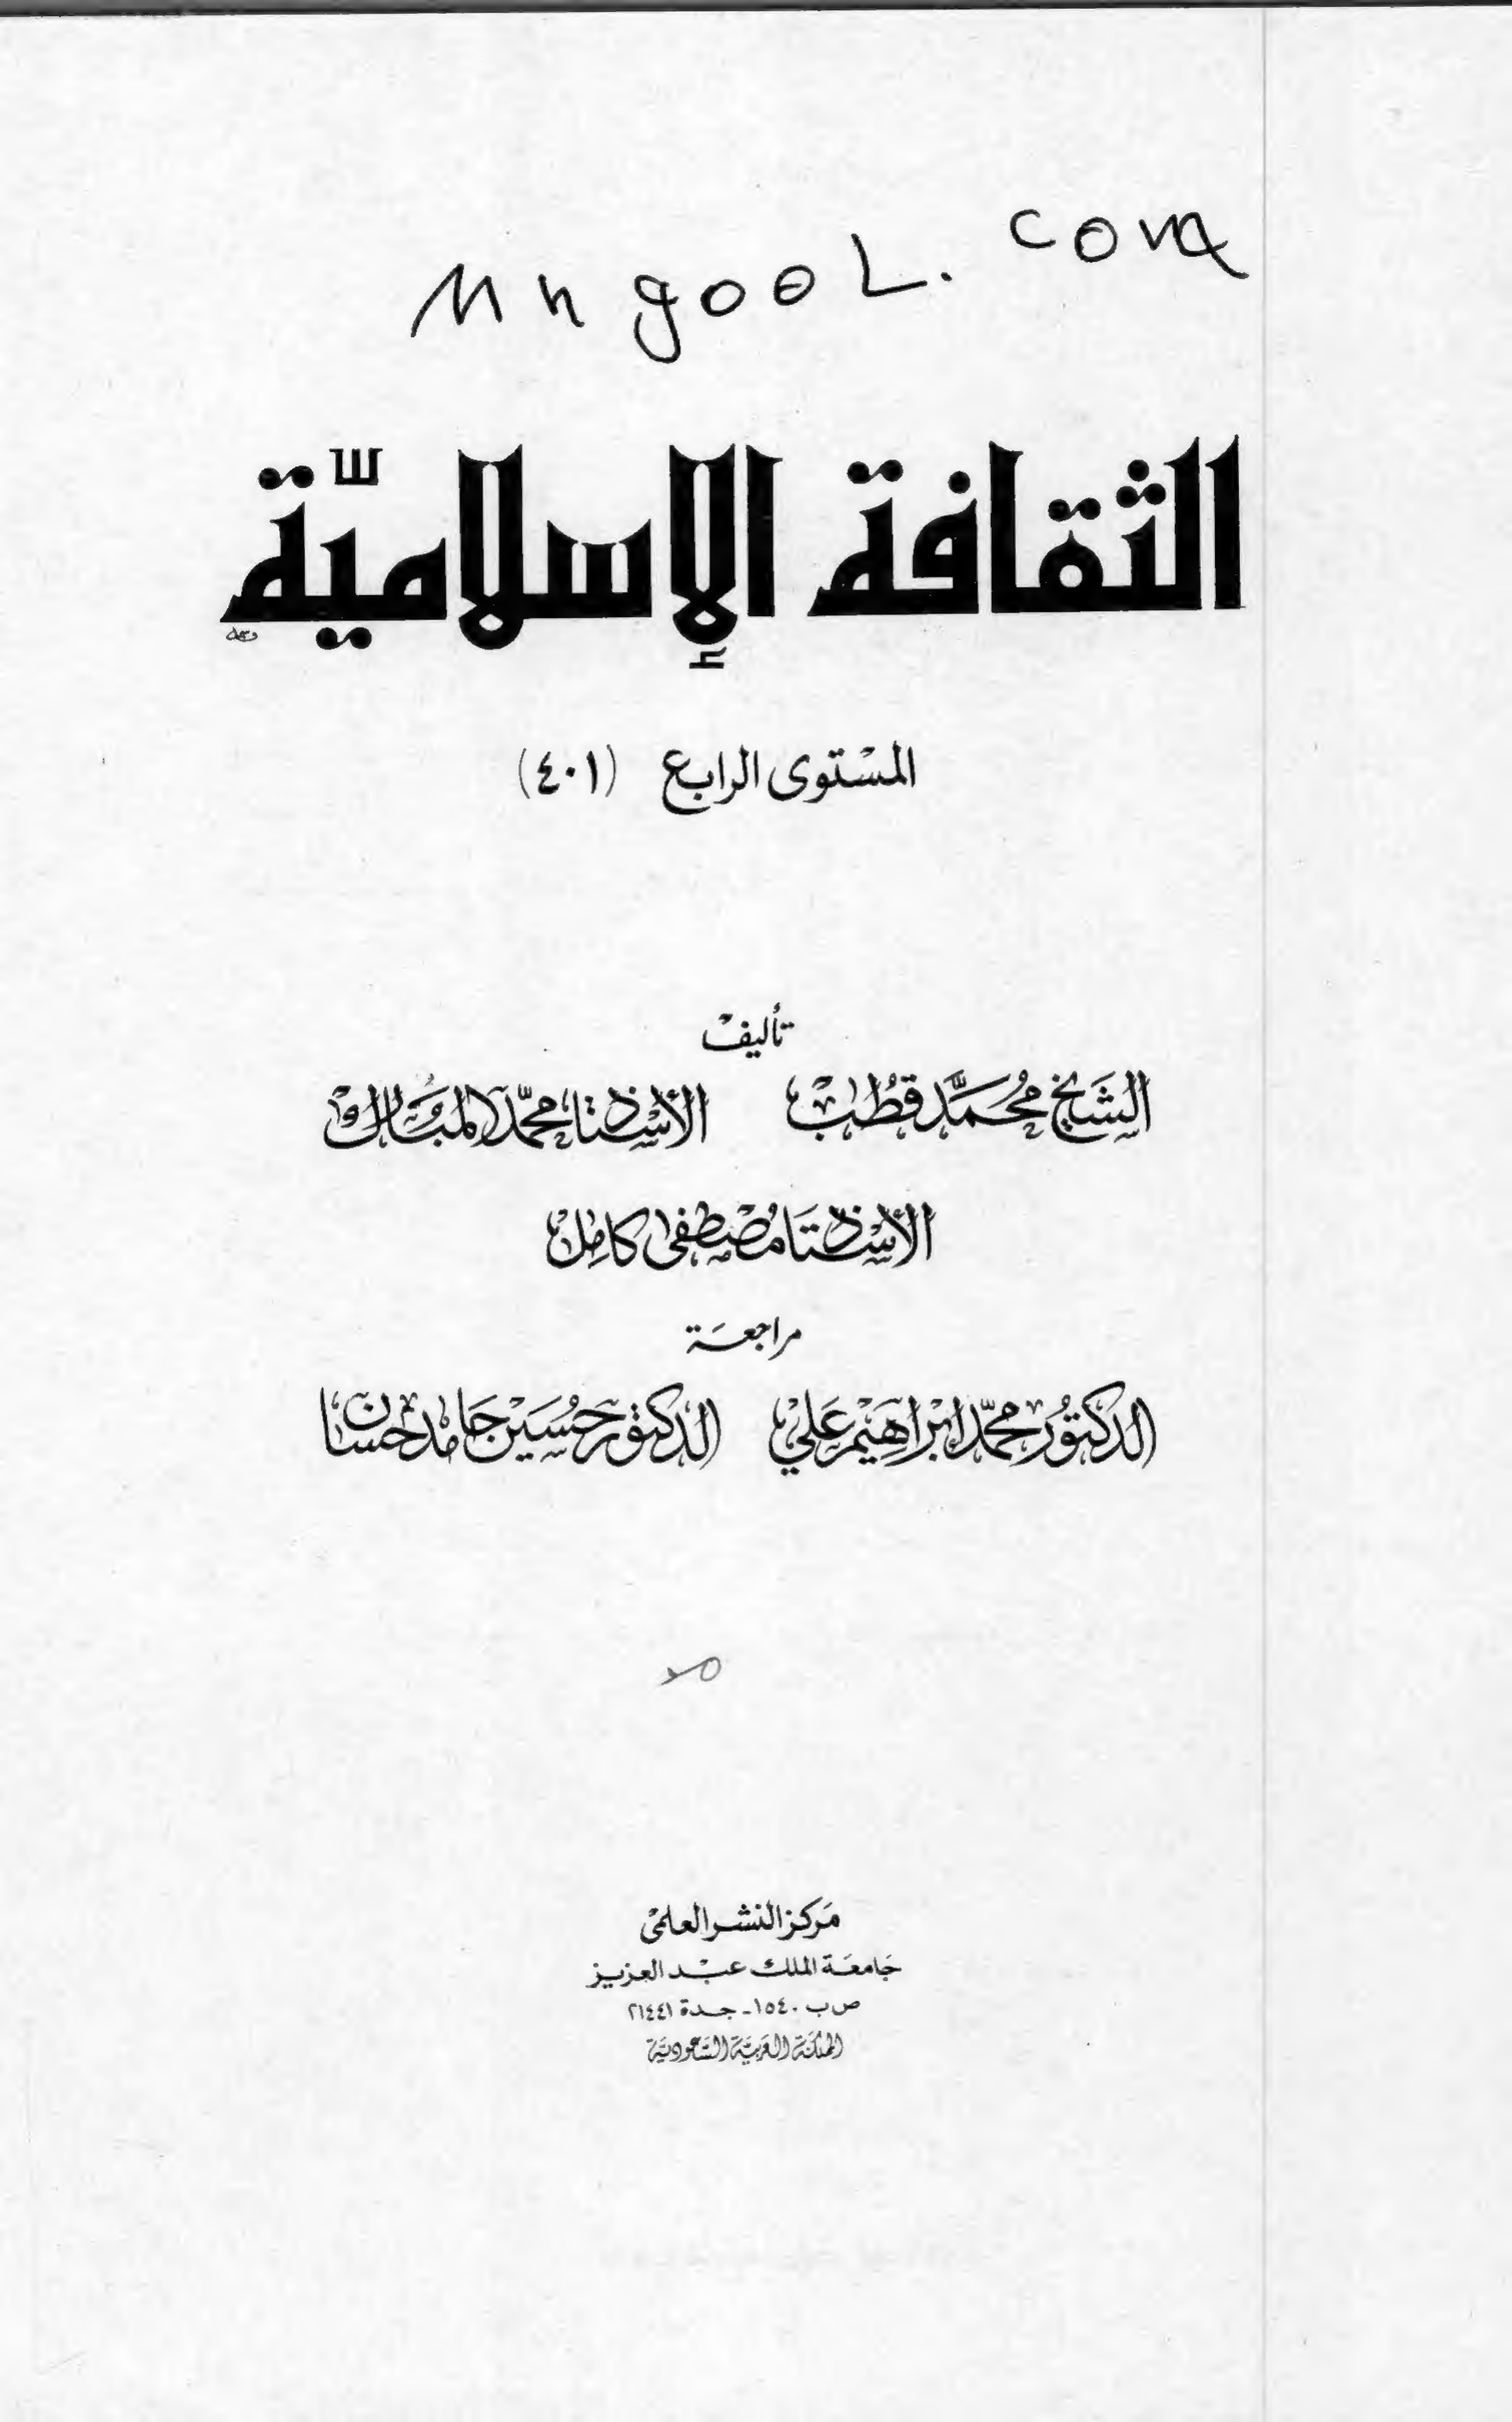 Mngool.com
الثقافة الإسلاميّة
المستوى الرابع (٤٠١)
تأليف
الشيخ محمد قطب الأستاذ محمد المبارك
الأستاذ مصطفى كامل
مراجعة
الدكتور محمد ابراهيم علي الدكتور حسين حامد حسان
مركز النشر العلمي
جامعة الملك عبد العزيز
ص ب ١٥٤٠ - جدة ٢١٤٤١
المملكة العربية السعودية